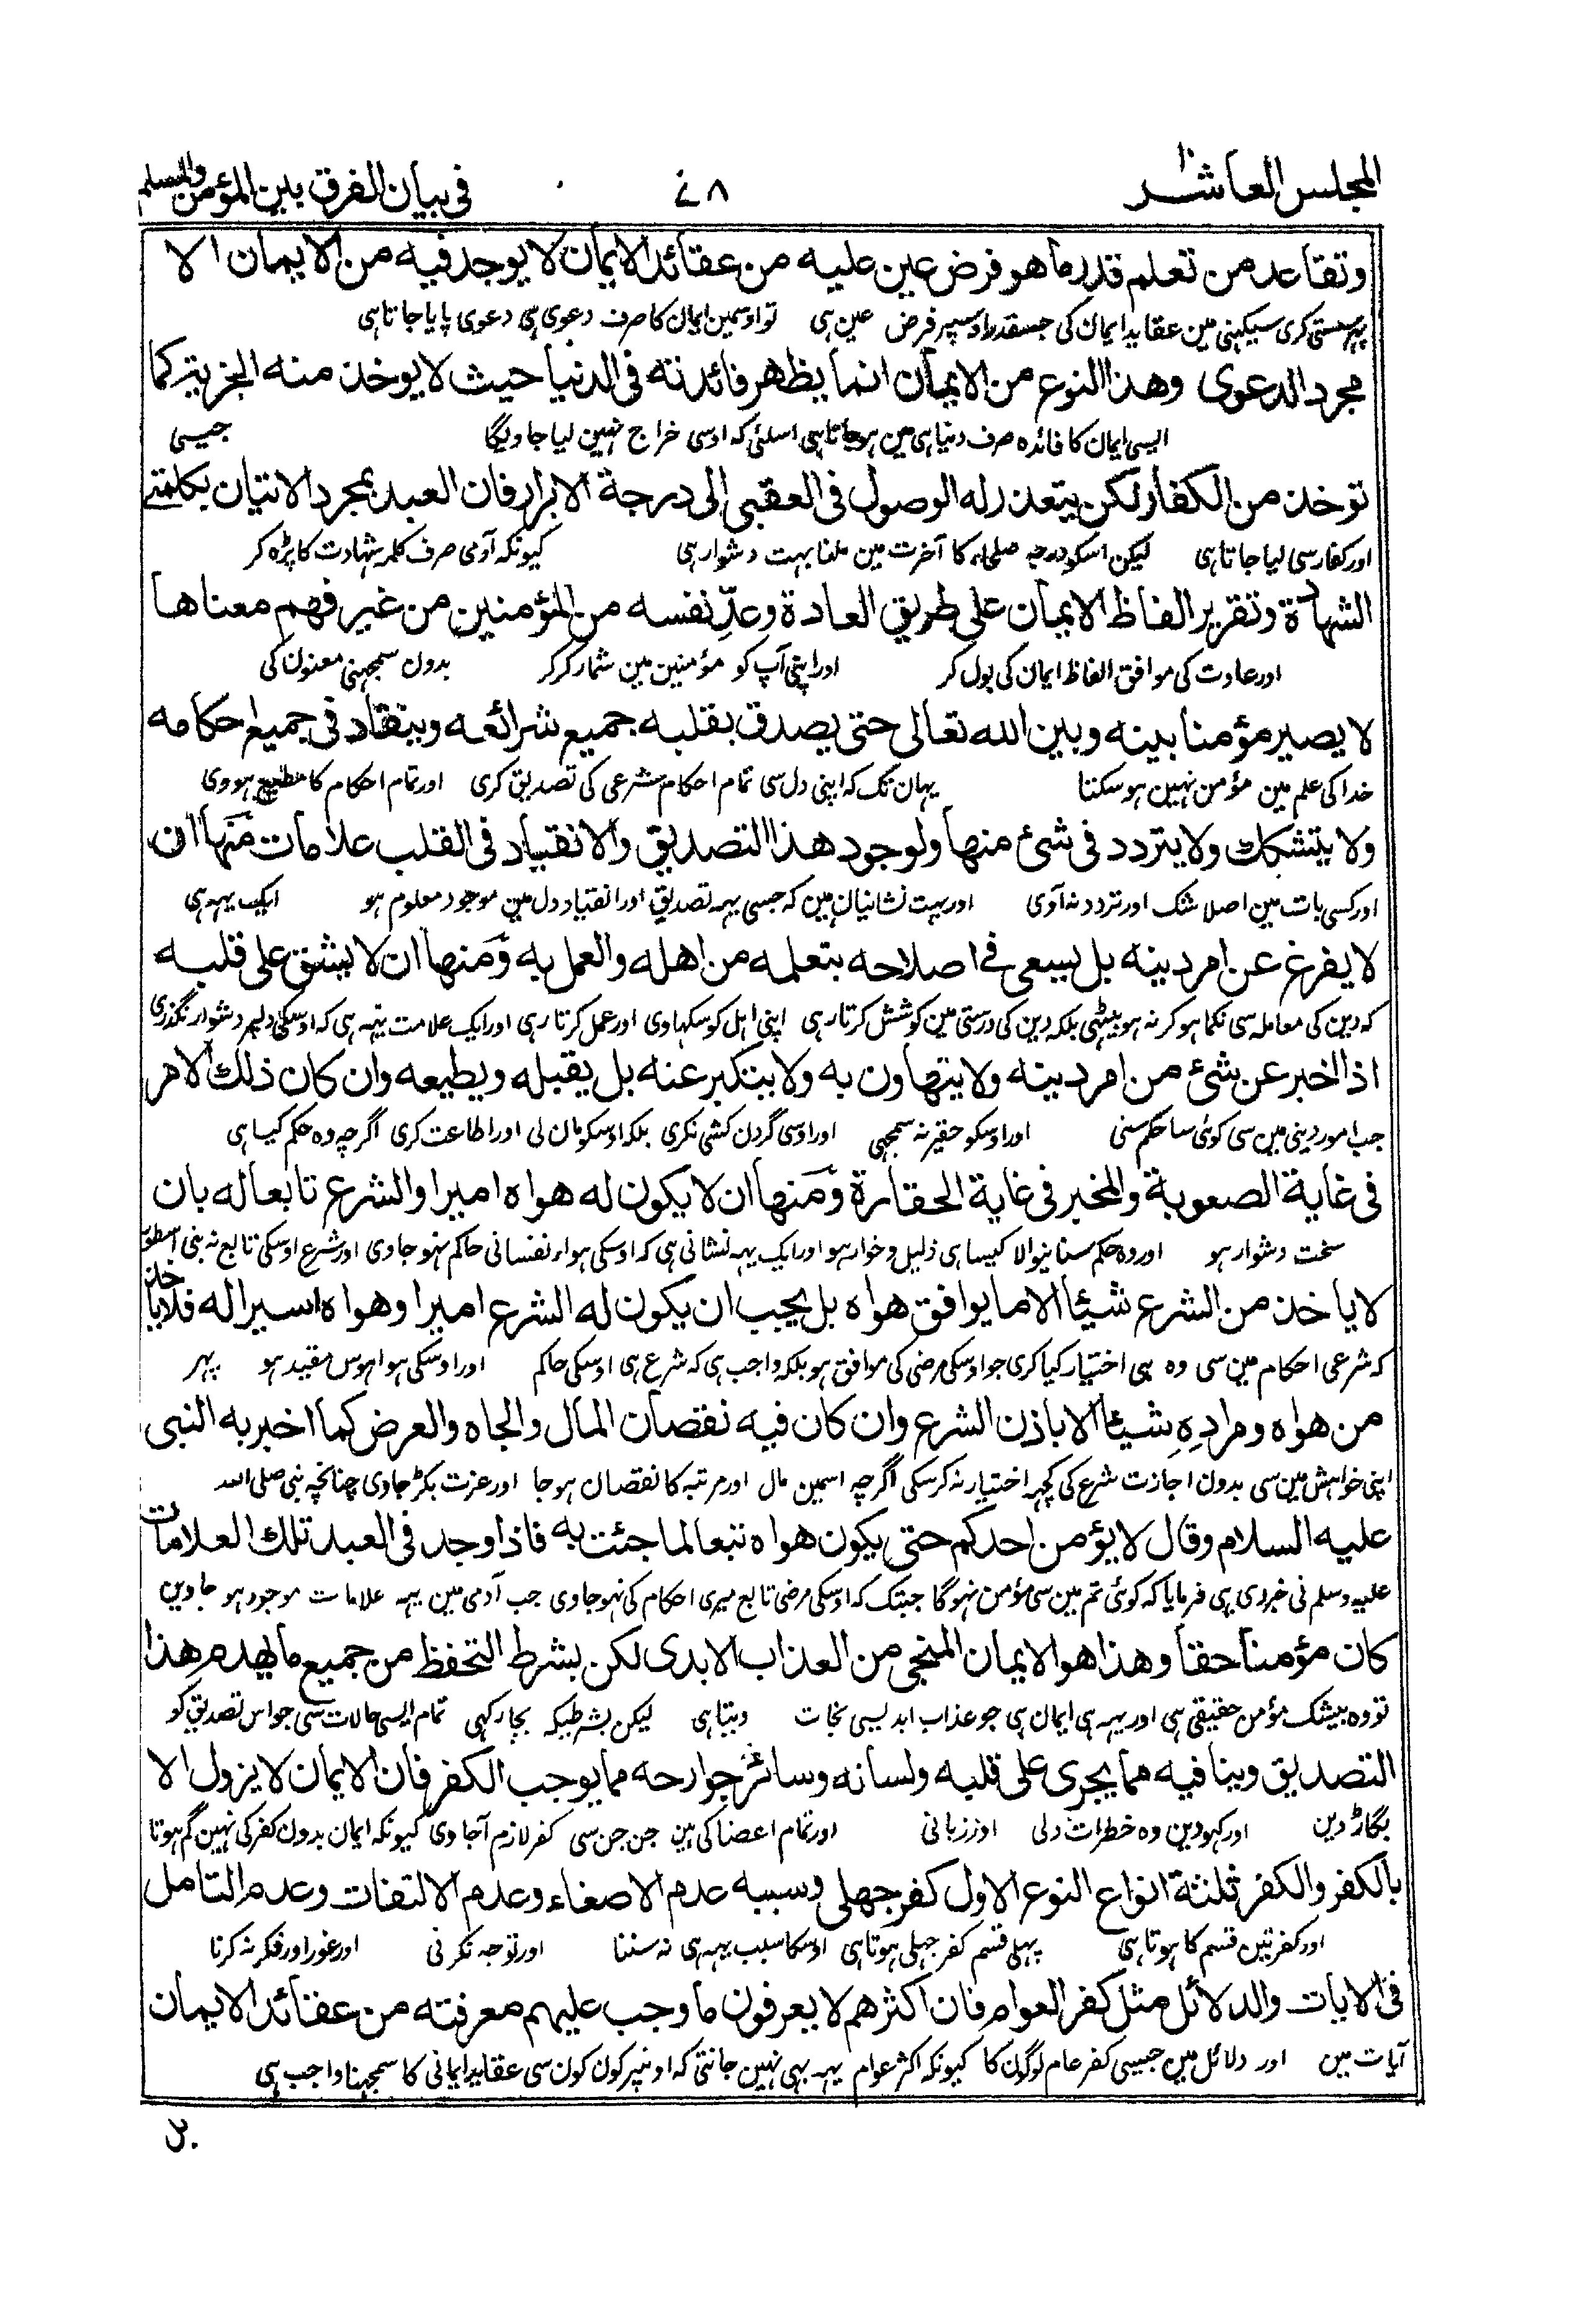 المجلس العاشر ٧٨ فی بیان الفرق بین المؤمن والمسلم
وتقاعد من تعلم قدر ما هو فرض عین علیه من عقائد الایمان لا یوجد فیه من الایمان الا
پہر سستی کری سیکہنی مین عقاید ایمان کی جسقدر اوسپر فرض عین ہی تو اوسمین ایمان کا صرف دعوی ہی دعوی پایا جاتا ہی
مجرد الدعوی وهذا النوع من الایمان انما یظهر فائدته فی الدنیا حیث لا یوخذ منه الجزیة کما
ایسی ایمان کا فائدہ صرف دنیا ہی مین ہو جاتا ہی اسلئی کہ اوسی خراج نہین لیا جاویگا جیسی
توخذ من الکفار ولکن یتعذر له الوصول فی العقبی الی درجة الابرار فان العبد بمجرد الاتیان بکلمتی
اور کفار سی لیا جاتا ہی لیکن اسکو درجہ صلحاء کا آخرت مین ملنا بہت دشوار ہی کیونکہ آدمی صرف کلمہ شہادت کا پڑہ کر
الشهادة وتقریر الفاظ الایمان علی طریق العادة وعدّ نفسه من المؤمنین من غیر فهم معناها
اور عادت کی موافق الفاظ ایمان کی بول کر اور اپنی آپ کو مؤمنین مین شمار کر کر بدون سمجہنی معنون کی
لا یصیر مؤمنا بینه وبین الله تعالی حتی یصدق بقلبه جمیع شرائعه وینقاد فی جمیع احکامه
خدا کی علم مین مؤمن نہین ہو سکتا یہان تک کہ اپنی دل سی تمام احکام شرعی کی تصدیق کری اور تمام احکام کا مطیع ہووی
ولا یتشکک ولا یتردد فی شئ منها ولوجود هذا التصدیق والانقیاد فی القلب علامات منها ان
اور کسی بات مین اصلا شک اور تردد نہ آوی اور بہت نشانیان ہین کہ جسی یہہ تصدیق اور انقیاد دل مین موجود معلوم ہو ایک یہہ ہی
لا یفرغ عن امر دینه بل یسعی فی اصلاحه بتعلمه من اهله والعمل به ومنها ان لا یشق علی قلبه
کہ دین کی معاملہ سی نکما ہو کر نہ ہو بیٹہی بلکہ دین کی درستی مین کوشش کرتا رہی اپنی اہل کو سکہاوی اور عمل کرتا رہی اور ایک علامت یہہ ہی کہ اوسکی دلپر دشوار نگذری
اذا اخبر عن شئ من امر دینه ولا یتهاون به ولا یتکبر عنه بل یقبله ویطیعه وان کان ذلک الامر
جب امور دینی مین سی کوئی سا حکم سنی اور اوسکو حقیر نہ سمجہی اور اوسی گردن کشی نکری بلکہ اوسکو مان لی اور اطاعت کری اگرچہ وہ حکم کیسا ہی
فی غایة الصعوبة والمخبر فی غایة الحقارة ومنها ان لا یکون له هواه امیرا والشرع تابعا له بان
سخت دشوار ہو اور وہ حکم سنانیوالا کیسا ہی ذلیل وخوار ہو اور ایک یہہ نشانی ہی کہ اوسکی ہواء نفسانی حاکم نہو جاوی اور شرع اوسکی تابع نہ بنی اسطور
لا یاخذ من الشرع شیئا الا ما یوافق هواه بل یجب ان یکون له الشرع امیرا وهواه اسیرا له فلا یاخذ
کہ شرعی احکام مین سی وہ ہی اختیار کیا کری جو اوسکی مرضی کی موافق ہو بلکہ واجب ہی کہ شرع ہی اوسکی حاکم اور اوسکی ہوا ہوس مقید ہو پہر
من هواه ومراده شیئا الا باذن الشرع وان کان فیه نقصان المال والجاه والعرض کما اخبر به النبی
اپنی خواہش مین سی بدون اجازت شرع کی کچہہ اختیار نہ کرسکی اگرچہ اسمین مال اور مرتبہ کا نقصان ہو جا اور عزت بگڑ جاوی چنانچہ نبی صلی الله
علیه السلام وقال لا یؤمن احدکم حتی یکون هواه تبعا لما جئت به فاذا وجد فی العبد تلک العلامات
علیہ وسلم نی خبر دی ہی فرمایا کہ کوئی تم مین سی مؤمن نہوگا جبتک کہ اوسکی مرضی تابع میری احکام کی نہو جاوی جب آدمی مین یہہ علامات موجود ہو جاوین
کان مؤمنا حقا وهذا هو الایمان المنجی من العذاب الابدی لکن بشرط التحفظ من جمیع ما یهدم هذا
تو وہ بیشک مؤمن حقیقی ہی اور یہہ ہی ایمان ہی جو عذاب ابد یسی نجات دیتا ہی لیکن بشرطیکہ بچا رکہی تمام ایسی حالات سی جو اس تصدیق کو
التصدیق وینافیه مما یجری علی قلبه ولسانه وسائر جوارحه مما یوجب الکفر فان الایمان لا یزول الا
بگاڑ دین اور کہو دین وہ خطرات دلی اور زبانی اور تمام اعضا کی ہین جن جن سی کفر لازم آجاوی کیونکہ ایمان بدون کفر کی نہین گم ہوتا
بالکفر والکفر ثلثة انواع النوع الاول کفر جهلی وسببه عدم الاصغاء وعدم الالتفات وعدم التامل
اور کفر تین قسم کا ہوتا ہی پہلی قسم کفر جہلی ہوتا ہی اوسکا سبب یہہ ہی نہ سننا اور توجہ نکرنی اور غور اور فکر نہ کرنا
فی الایات والدلائل مثل کفر العوام فان اکثرهم لا یعرفون ما وجب علیهم معرفته من عقائد الایمان
آیات مین اور دلائل مین جیسی کفر عام لوگون کا کیونکہ اکثر عوام یہہ بہی نہین جانتی کہ اونپر کون کون سی عقاید ایمانی کا سمجہنا واجب ہی